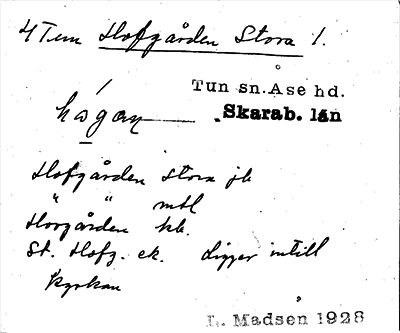 4 Tun Hofgården Stora 1.
Tun sn. Åse hd.
Skarab. län
hågan
Hofgården Stora jb
" " mtl
Horgården kb.
St. Hofg. ek. Ligger intill
kyrkan
L. Madsen 1928